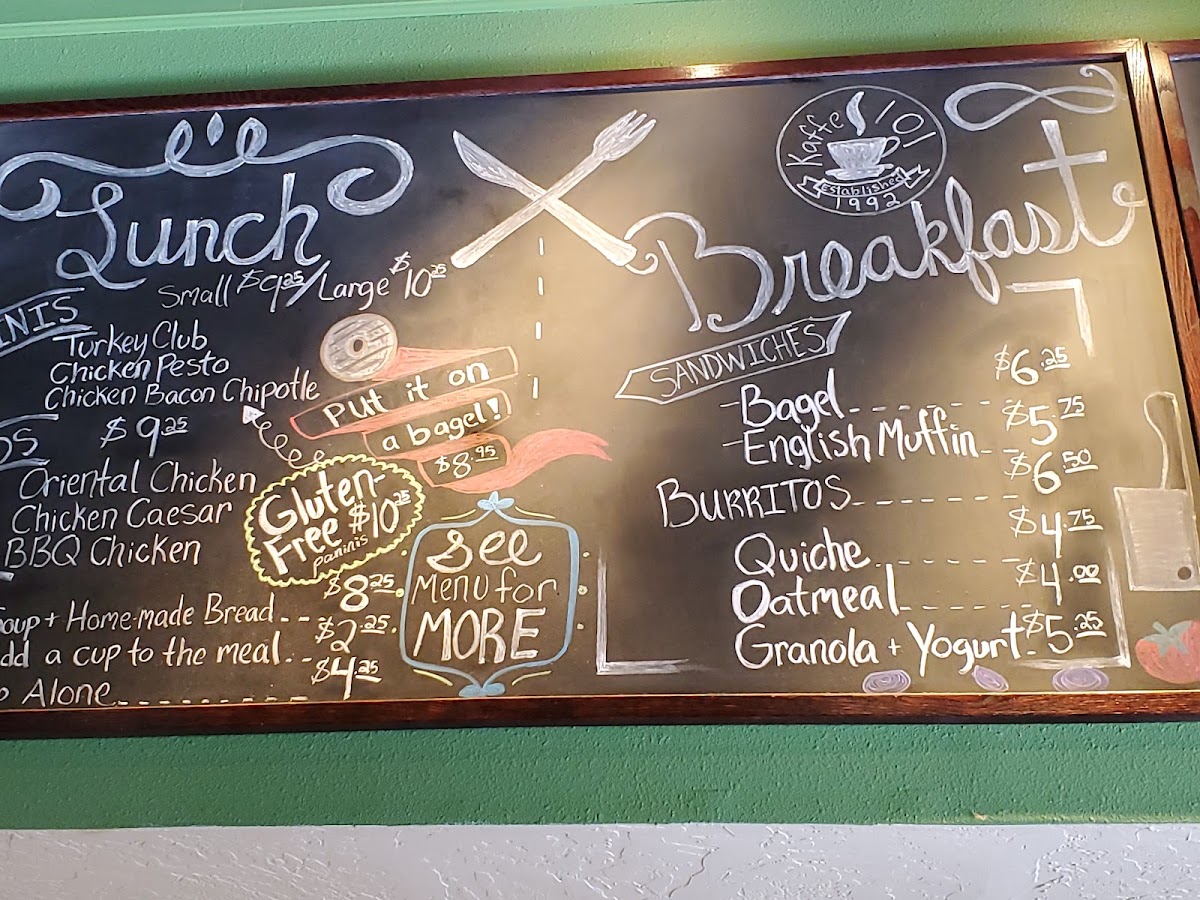 Lunch
Small $9.25/Large $10.25
INIS
Turkey Club
Chicken Pesto
Chicken Bacon Chipotle
$9.25
Put it on
a bagel!
$8.95
OS
Oriental Chicken
Chicken Caesar
BBQ Chicken
Gluten-
Free $10.25
paninis
oup + Home-made Bread -- $8.25
dd a cup to the meal.-- $2.25
Alone --------- $4.25
See
Menu for
MORE
Kaffe 101
Established
1992
Breakfast
SANDWICHES
-Bagel ------ $6.25
-English Muffin -- $5.75
BURRITOS ------ $6.50
Quiche ------ $4.75
Oatmeal ------ $4.00
Granola + Yogurt - $5.25